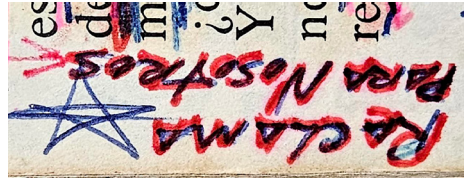 ReclAMA
PARA NosotRos
es
de
m
¿c
Y
no
re